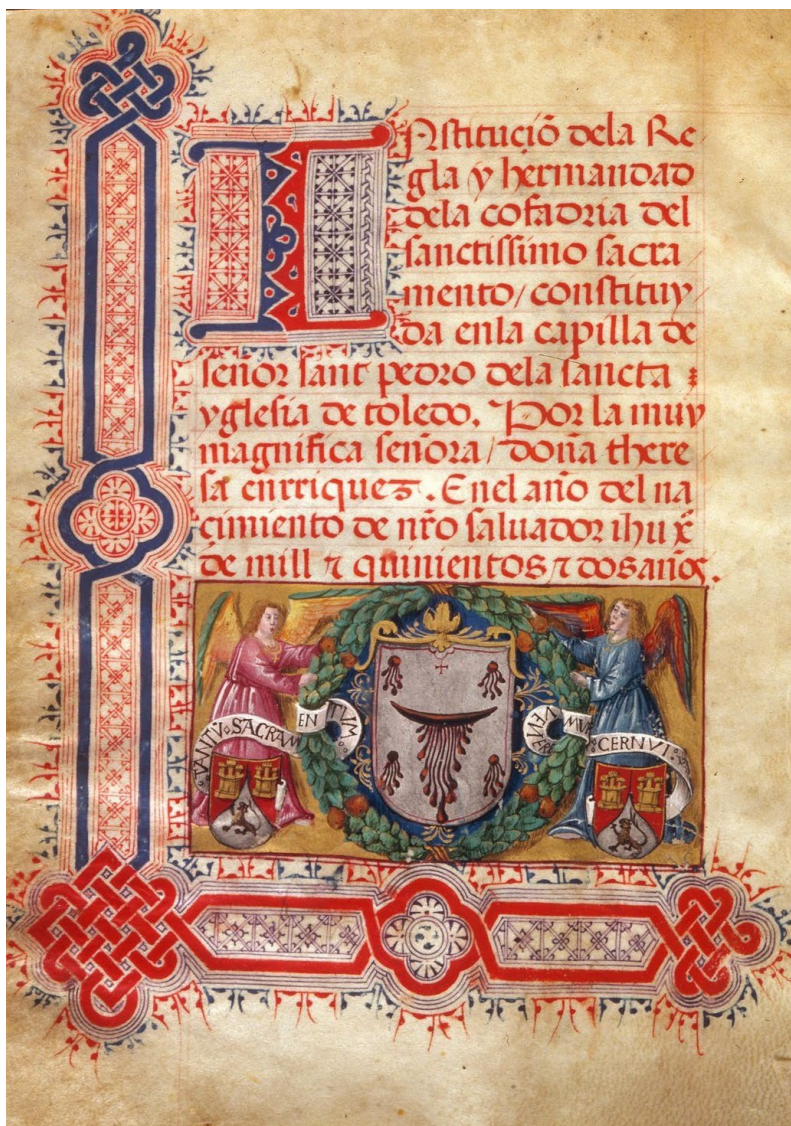 Instituciõ dela Re
gla y hermandad
dela cofadria del
sanctissimo sacra
mento/ constituy
da enla capilla de
señor sant pedro dela sancta :
yglesia de toledo. Por la muy
magnifica señora/ doña there
sa enrriquez. Enel año del na
cimiento de nr̃o saluador ihu xp̃
de mill ⁊ quinientos ⁊ dos años.
TANTŪ SACRAMENTUM
VENEREMUR CERNVI